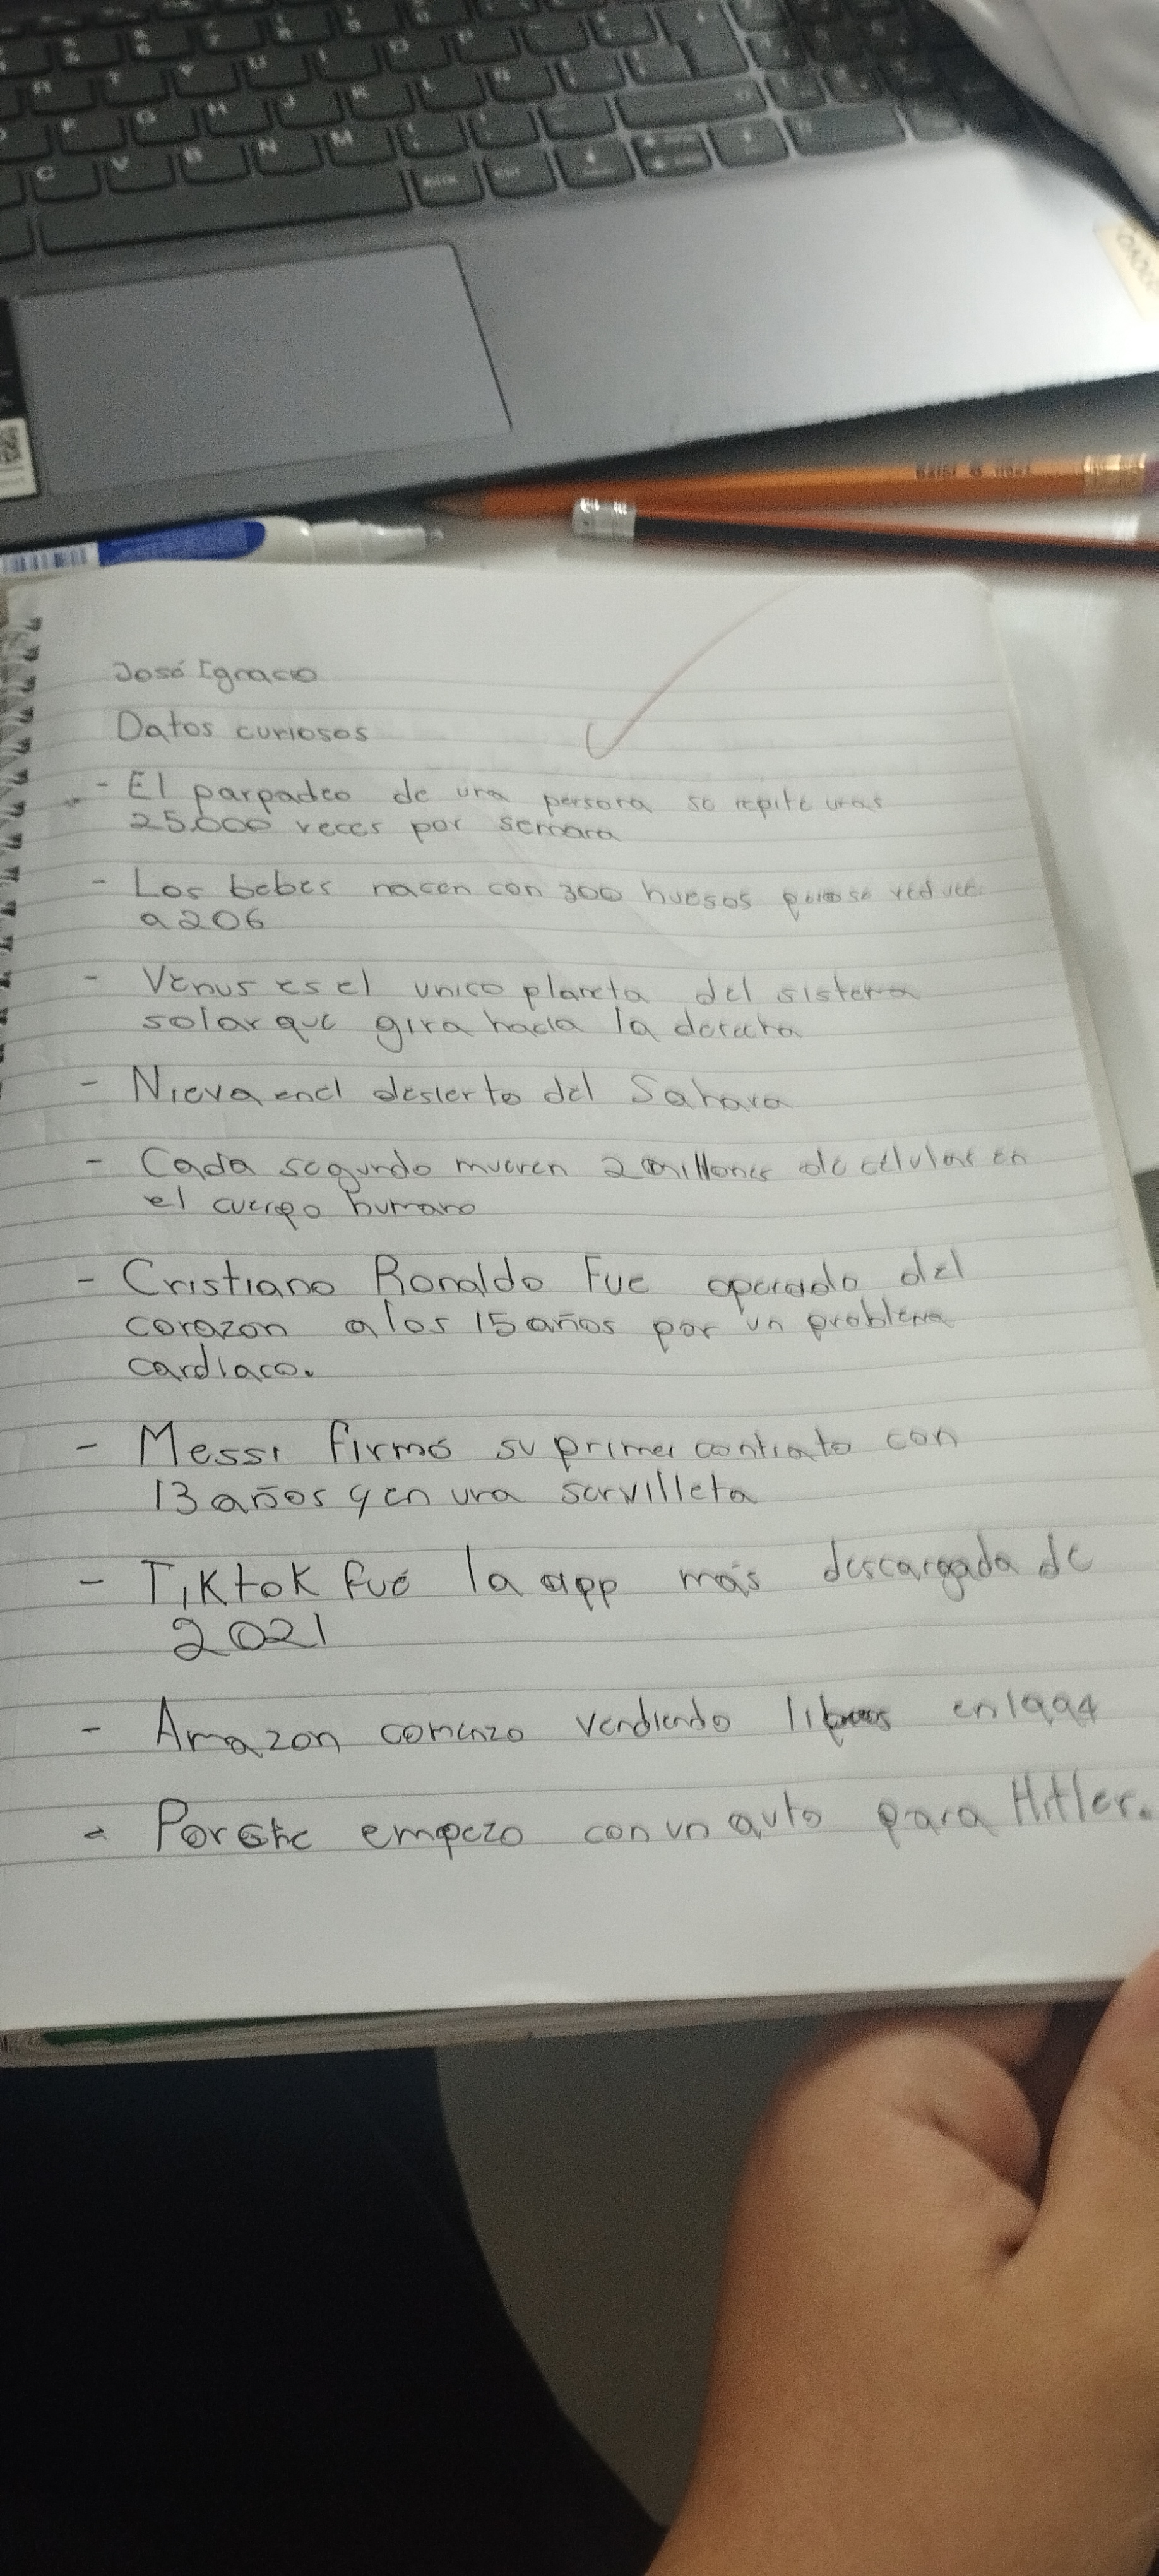 José Ignacio
Datos curiosos
- El parpadeo de una persona se repite unas
25.000 veces por semana
- Los bebes nacen con 300 huesos se reduce
a 206
- Venus es el unico planeta del sistema
solar que gira hacia la derecha
- Nieva en el desierto del Sahara
- Cada segundo mueren 2 millones de celulas en
el cuerpo humano
- Cristiano Ronaldo Fue operado del
corazon a los 15 años por un problema
cardiaco.
- Messi firmó su primer contrato con
13 años y en una servilleta
- Tiktok fué la app más descargada de
2021
- Amazon comenzo vendiendo libros en 1994
- Porshe empezo con un auto para Hitler.